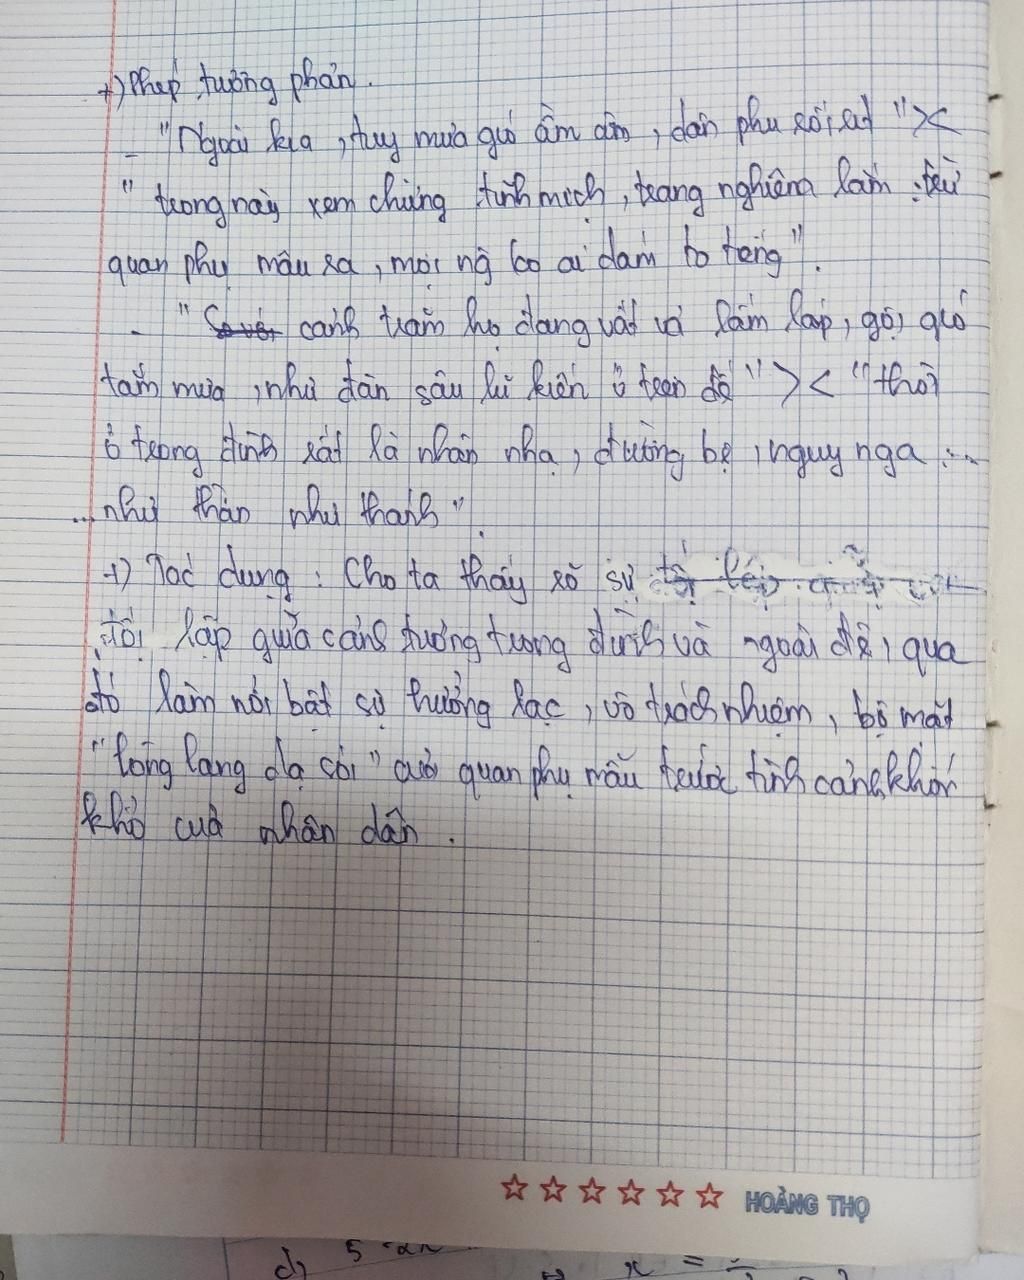 +) Phép tương phản.
_ "Ngoài kia, tuy mưa gió ầm ầm, dân phu rối rít" ><
" trong này xem chừng tĩnh mịch, trang nghiêm lắm: trừ
quan phụ mẫu ra, mọi ng ko ai dám to tiếng".
_ " cảnh trăm họ đang vất vả lấm láp, gội gió
tắm mưa, như đàn sâu lũ kiến ở trên đê" >< "thời
ở trong đình rất là nhàn nhã, đường bệ, nguy nga...
...như thần như thánh".
+) Tác dụng: Cho ta thấy rõ sự
đối lập giữa cảnh tượng trong đình và ngoài đê, qua
đó làm nổi bật sự hưởng lạc, vô trách nhiệm, bộ mặt
"lòng lang dạ sói" của quan phụ mẫu trước tình cảnh khốn
khổ của nhân dân.
HOÀNG THỌ
d, 5
x =